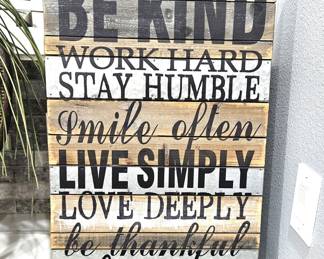 BE KIND
WORK HARD
STAY HUMBLE
Smile often
LIVE SIMPLY
LOVE DEEPLY
be thankful